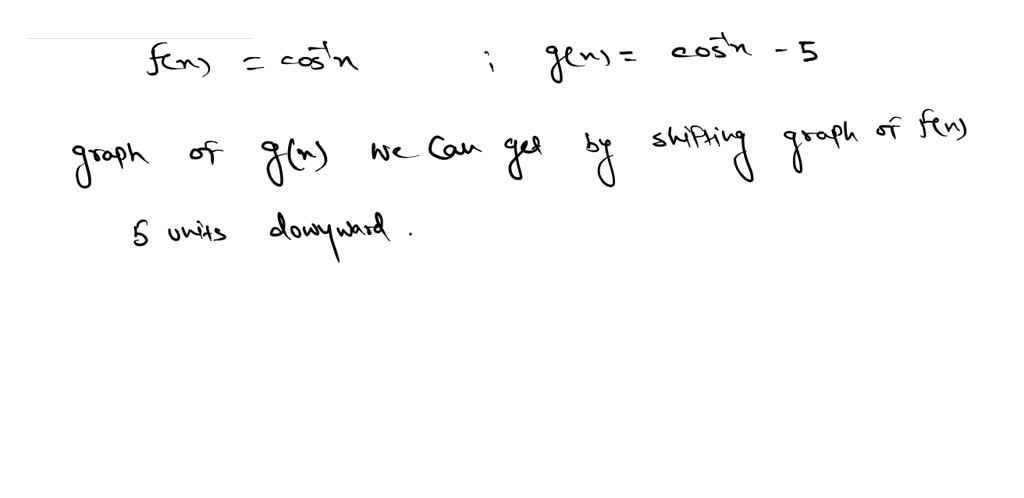 f(x) = cos⁻¹x ; g(x) = cos⁻¹x - 5
graph of g(x) we can get by shifting graph of f(x)
5 units downward.